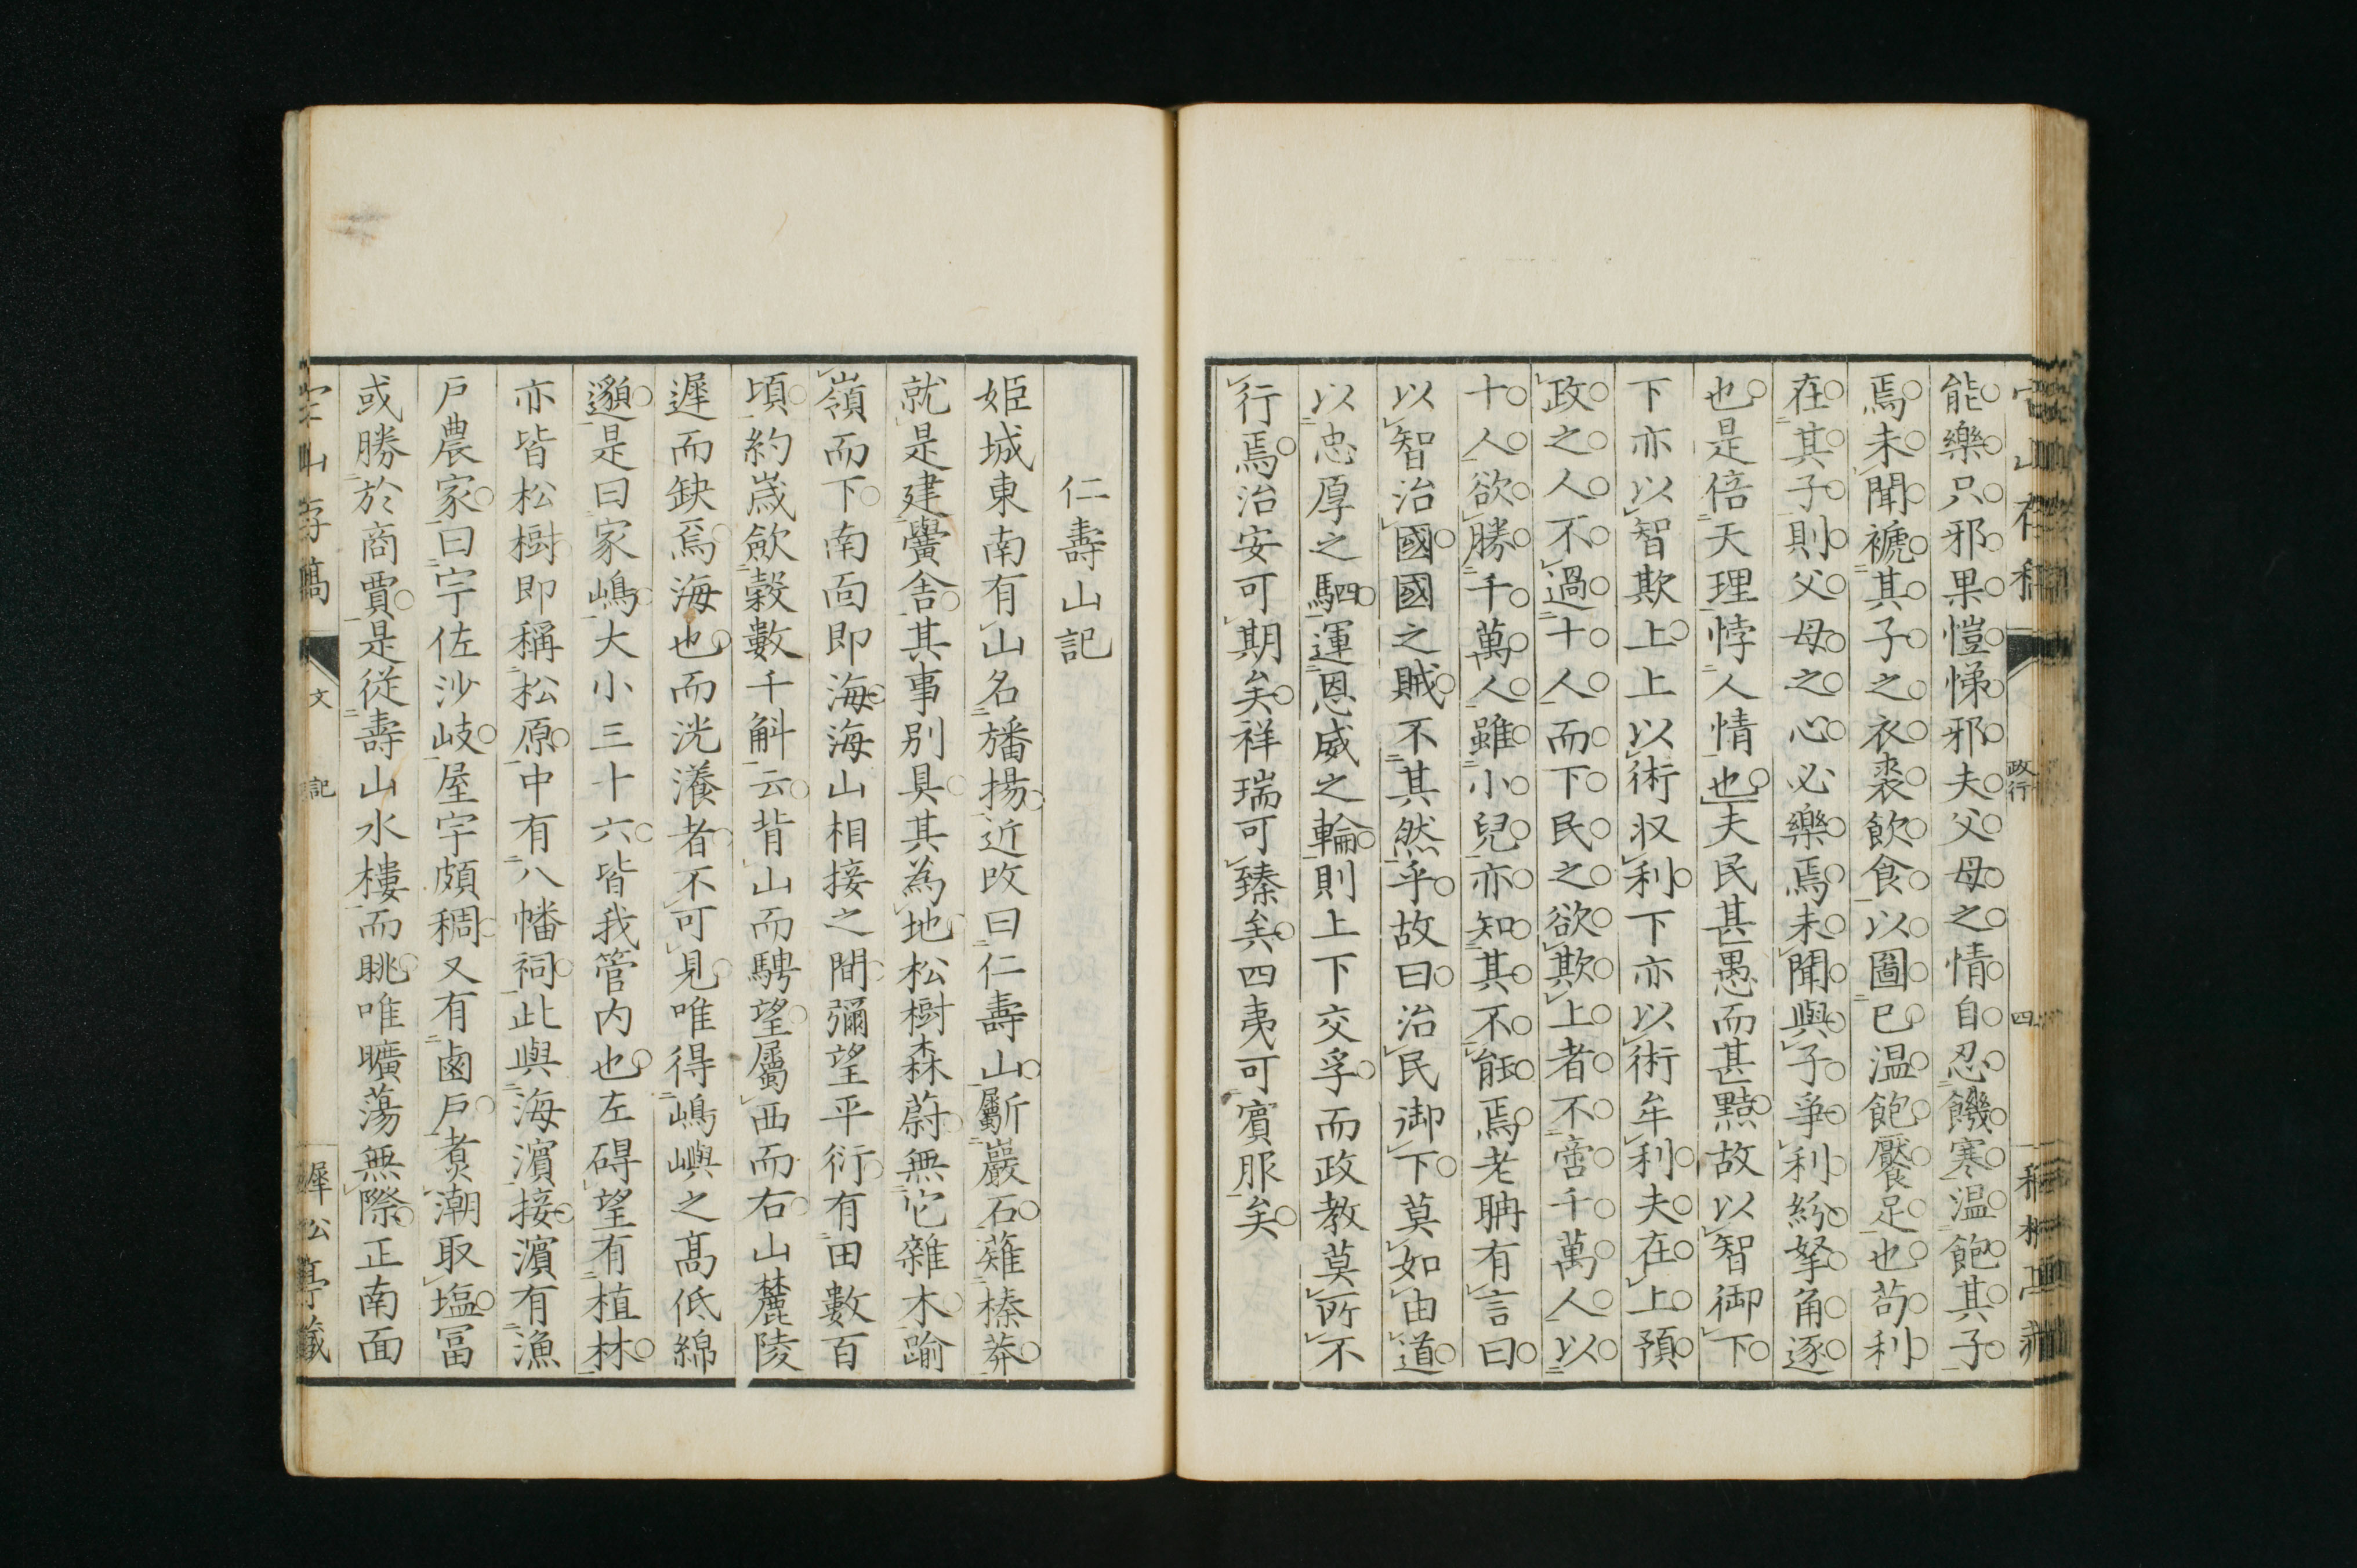 能樂只邪果愷悌邪夫父母之情自忍饑寒温飽其子
焉未聞褫其子之衣裘飲食以圖已温飽饜足也苟利
在其子則父母之心必樂焉未聞與子爭利紛拏角逐
也是倍天理悖人情也夫民甚愚而甚黠故以智御下
下亦以智欺上上以術収利下亦以術牟利夫在上預
政之人不過十人而下民之欲欺上者不啻千萬人以
十人欲勝千萬人雖小兒亦知其不能焉老聃有言曰
以智治國國之賊不其然乎故曰治民御下莫如由道
以忠厚之駟運恩威之輪則上下交孚而政教莫所不
行焉治安可期矣祥瑞可臻矣四夷可賓服矣
政行
四
仁壽山記
姫城東南有山名旛揚近改曰仁壽山斸巖石薙榛莽
就是建黌舎其事別具其為地松樹森蔚無它雜木踰
嶺而下南面即海海山相接之間彌望平衍有田數百
頃約歳歛穀數千斛云背山而騁望屬西而右山麓陵
遲而缺焉海也而洸瀁者不可見唯得嶋嶼之髙低綿
邈是曰家嶋大小三十六皆我管内也左碍望有植林
亦皆松樹即稱松原中有八幡祠此與海濵接濵有漁
戸農家曰宇佐沙岐屋宇頗稠又有鹵戸煮潮取塩冨
或勝於商賈是従壽山水樓而眺唯曠蕩無際正南面
文
記